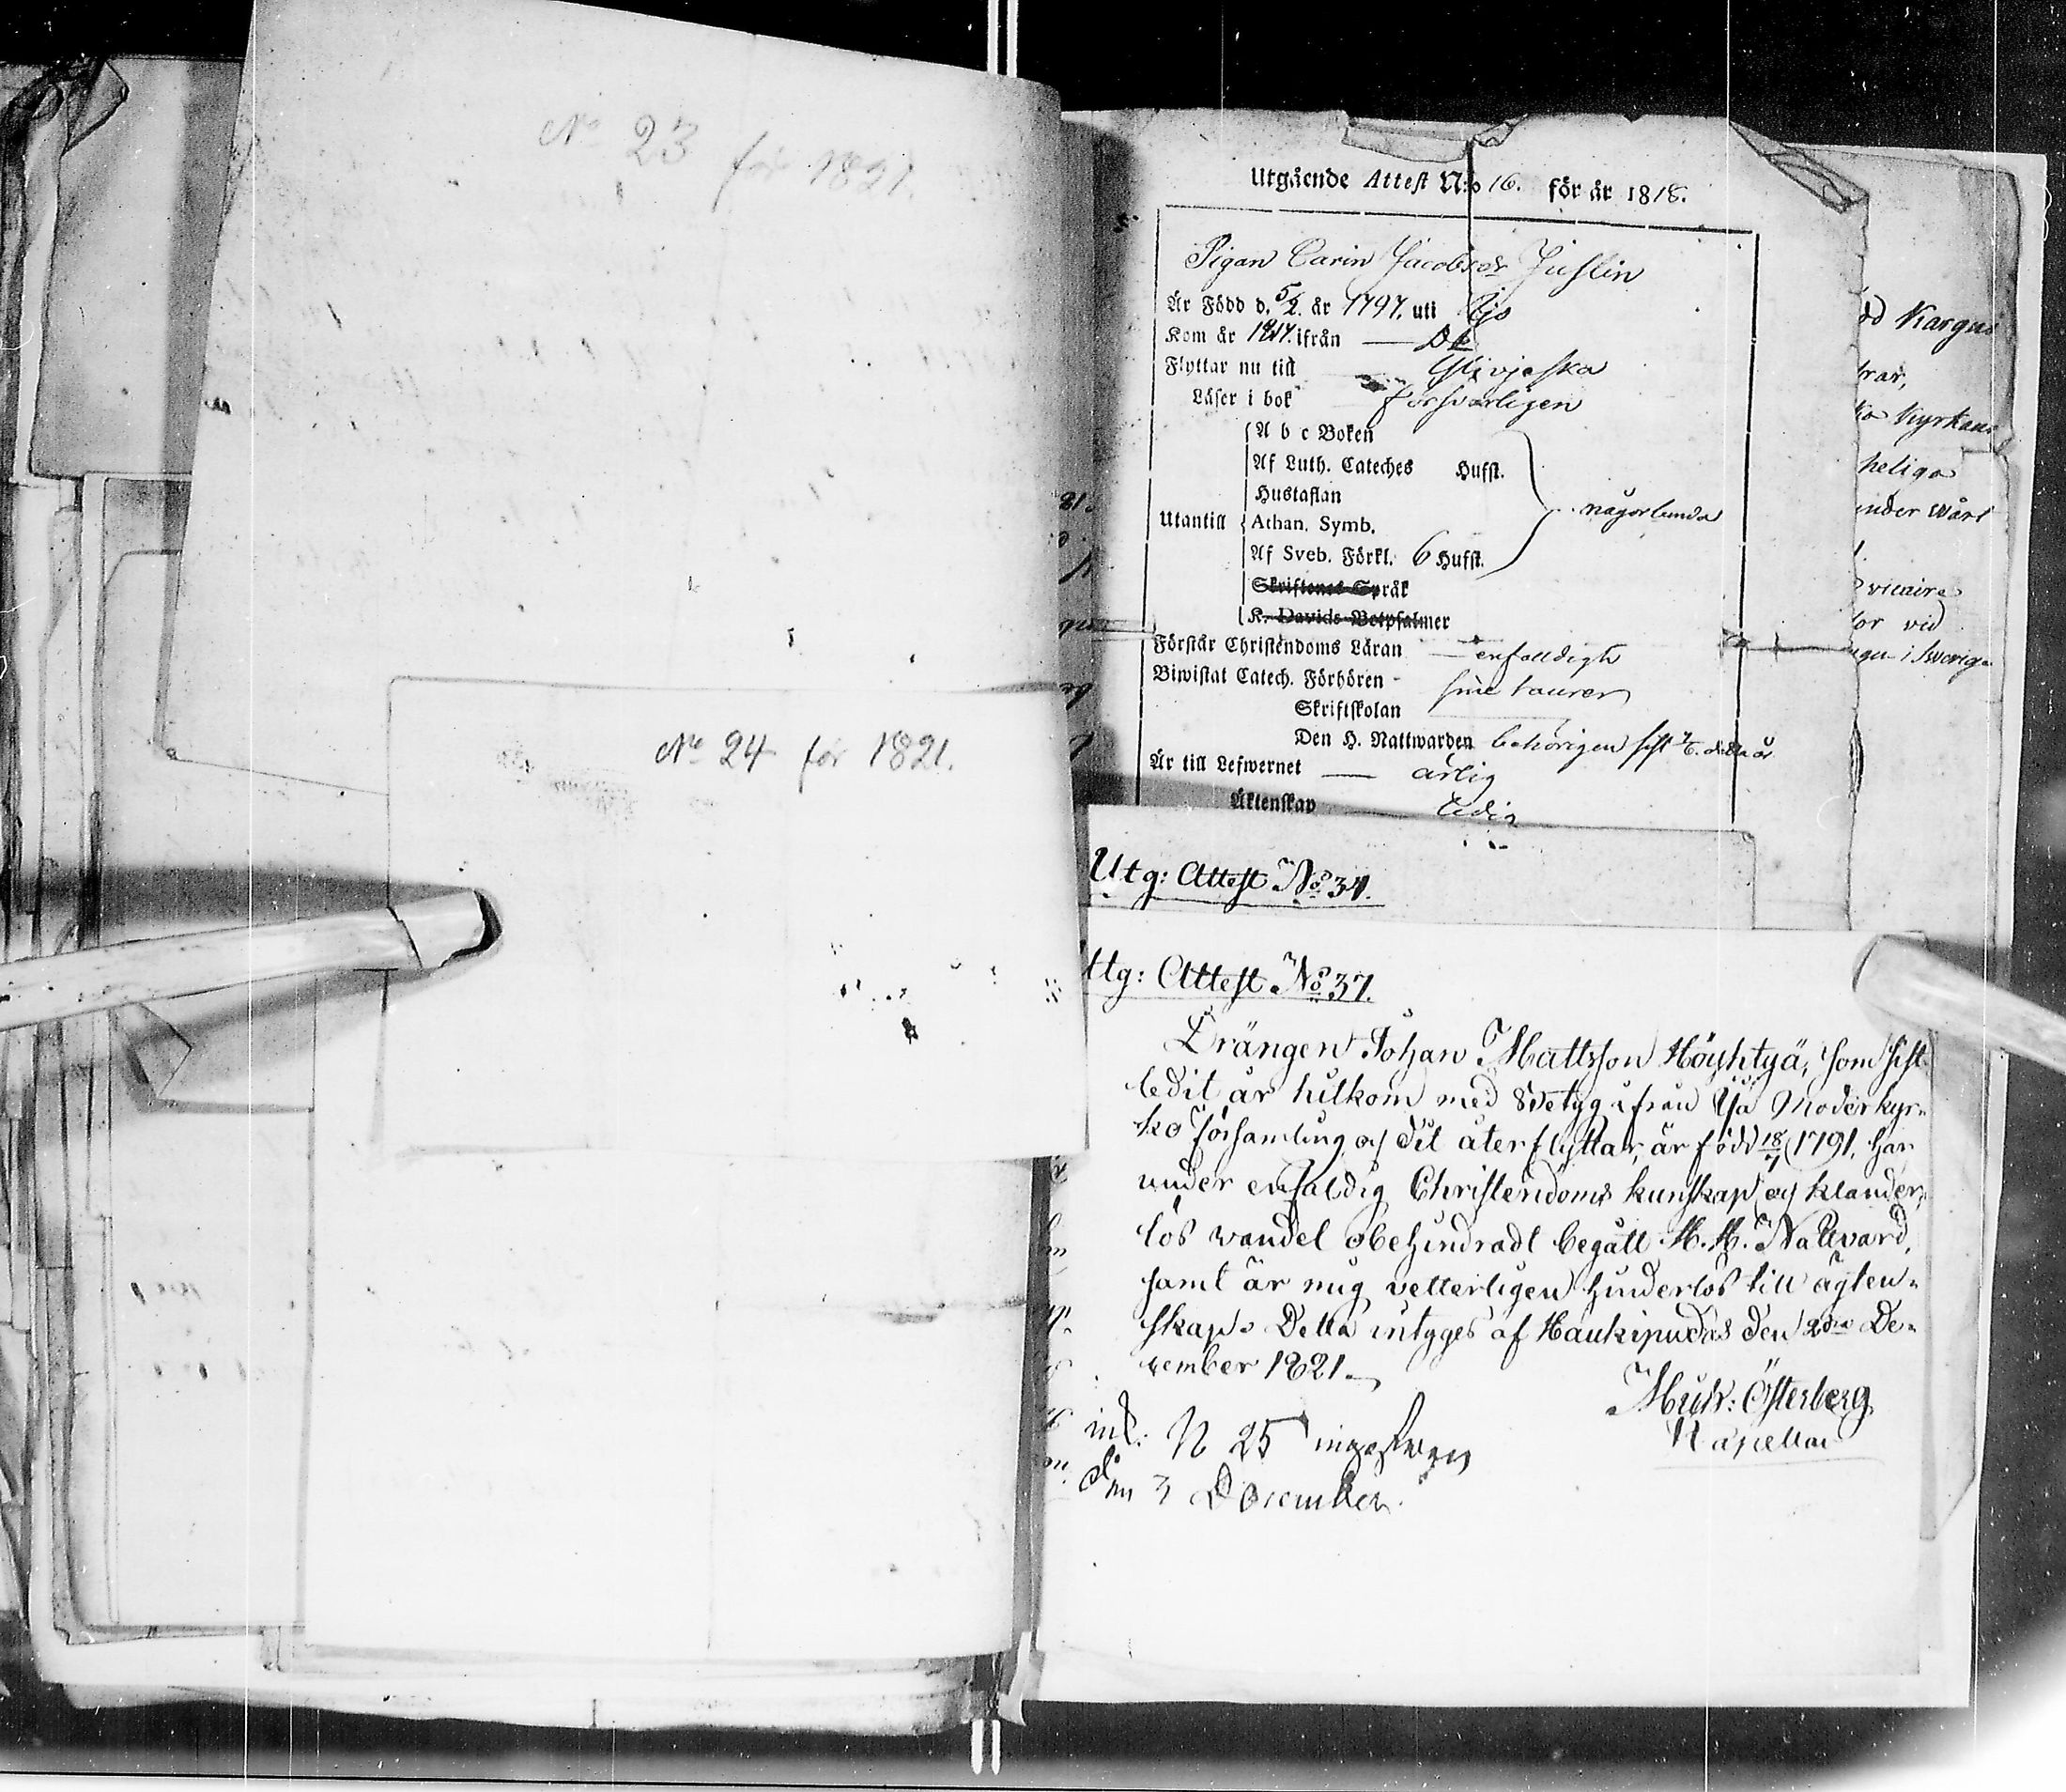 No 23 för 1821.
No 24 för 1821.
Utgående Attest N:o 16. för år 1818.
Pigan Carin Jacobsdr Juslin
Är Född d. 5/2. år 1797. uti Ijo
Kom år 1817. ifrån —
Flyttar nu till Ylivjeska
Läser i bok försvarligen
A b c Boken
Af Luth. Cateches Hufst.
Hustaflan
någorlunda
Utantill Athan. Symb.
Af Sveb. Förkl. 6 Hufst.
Skriftenes Språk
K. Davids Botpsalmer
Förstår Christendoms Läran — enfaldigt
Biwistat Catech. Förhören -
Skriftskolan
Den H. Nattwarden behörigen sist detta år
Är till Lefwernet — ärlig
Äktenskap — ledig
Utg: Attest No 34.
ttg: Attest No 37.
Drängen Johan Mattsson Höyhtyä, som sist
ledit år hitkom med Betyg ifrån Ijå Moderkyr-
ko Församling och dit återflyttar, är född 18/7 1791, har
under enfaldig Christendoms kunskap och klander-
lös wandel obehindradt begått H. H. Nattvard,
samt är mig vetterligen hinderlös till ägten-
skap. Detta intyges af Haukipudas den 2dra De-
cember 1821.
Österberg
Kapellan
inl: N 25
den 3 December.
dd Kargus
rar,
ka Kyrkans
heliga
under vårt
vicaire
tor vid
ngen i Sverige